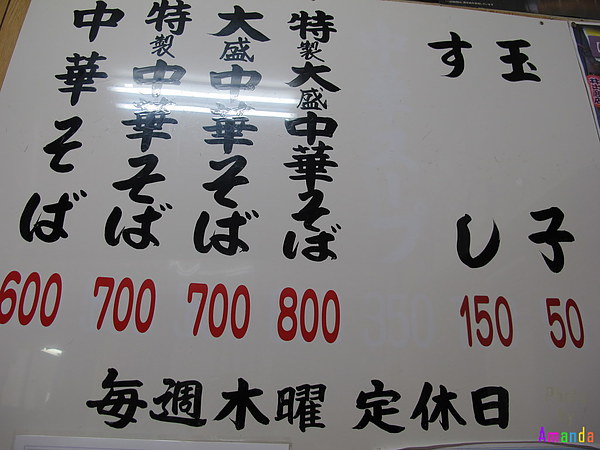 玉子 50
すし 150
特製大盛中華そば 800
大盛中華そば 700
特製中華そば 700
中華そば 600
毎週木曜 定休日
Amanda